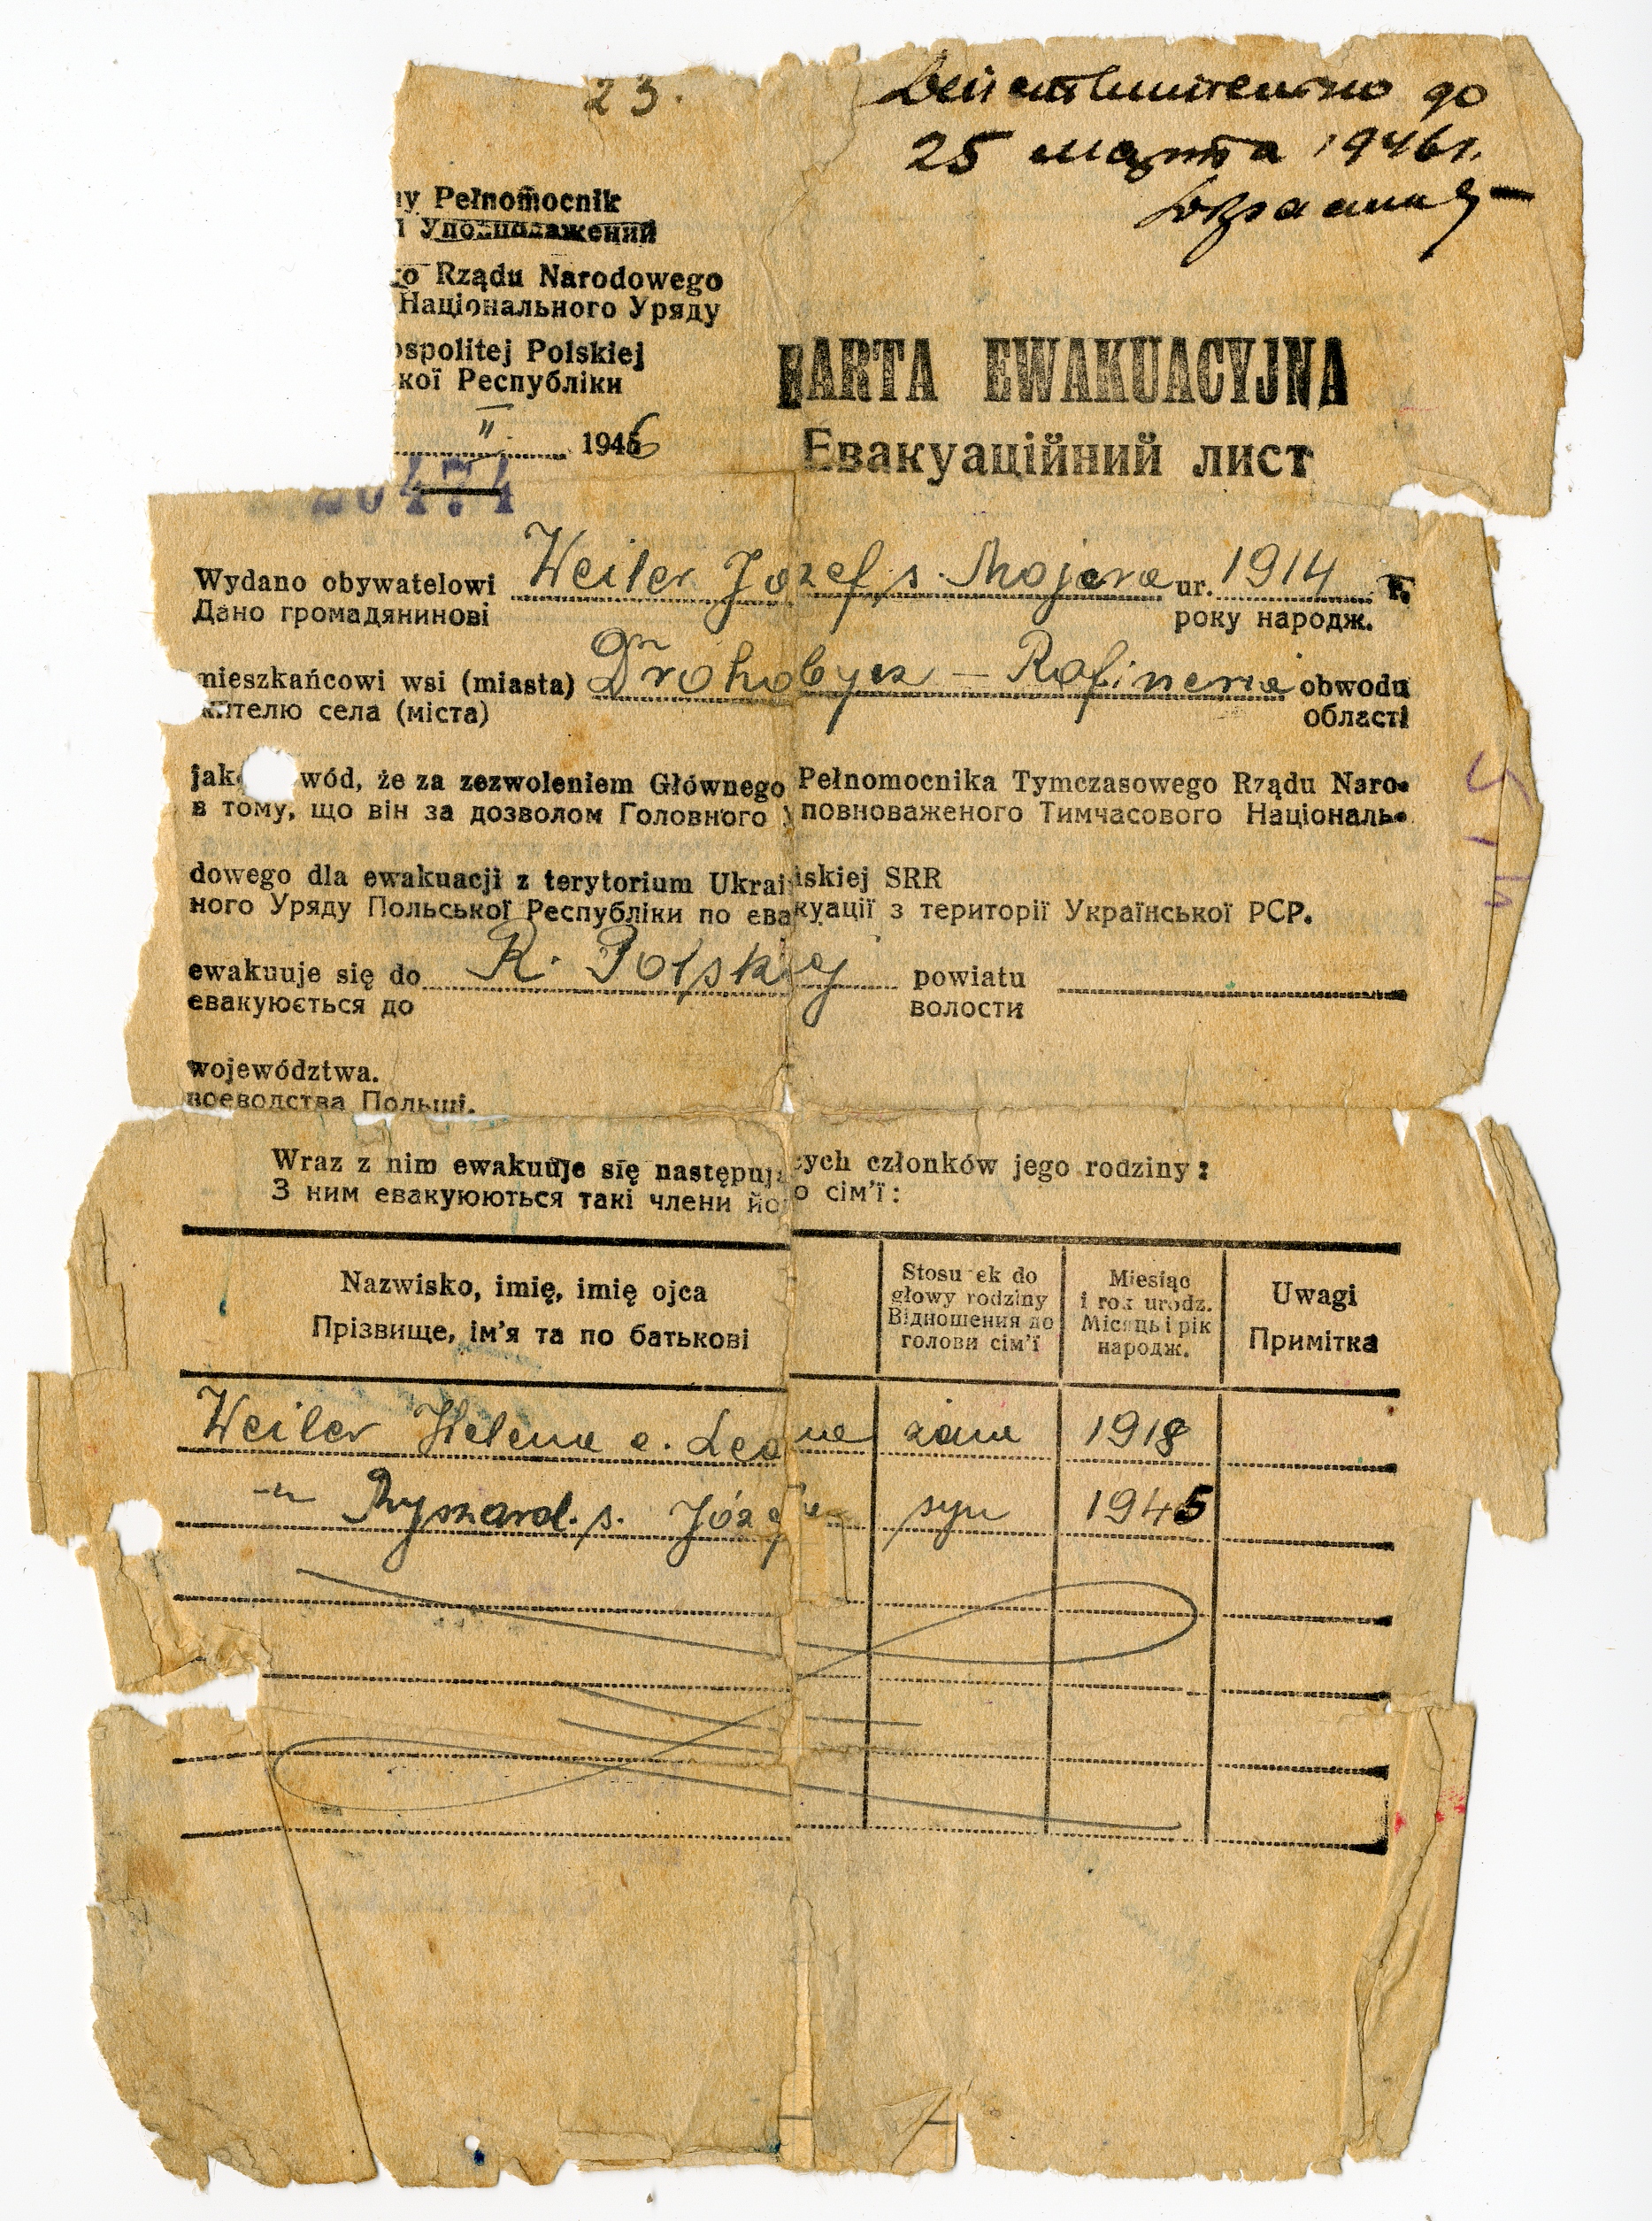 23.
Действительно до
25 марта 1946 г.
ny Pełnomocnik
го Rządu Narodowego
Національного Уряду
ospolitej Polskiej
кої Республіки
II 1946
KARTA EWAKUACYJNA
Евакуаційний лист
Wydano obywatelowi Weiler Jozef s. Mojera ur. 1914 r.
Дано громадянинові року народж.
mieszkańcowi wsi (miasta) Drohobycz - Rafineria obwodu
жителю села (міста) області
jako wód, że za zezwoleniem Głównego Pełnomocnika Tymczasowego Rządu Naro-
в тому, що він за дозволом Головного Уповноваженого Тимчасового Національ-
dowego dla ewakuacji z terytorium Ukraińskiej SRR
ного Уряду Польської Республіки по евакуації з території Української РСР.
ewakuuje się do R. Polskiej powiatu
евакуюється до волости
województwa.
воеводства Польщі.
Wraz z nim ewakuuje się następujących członków jego rodziny:
З ним евакуюються такі члени його сім'ї:
Nazwisko, imię, imię ojca
Прізвище, ім'я та по батькові
Stosunek do głowy rodziny
Відношення до голови сім'ї
Miesiąc i rok urodz.
Місяць і рік народж.
Uwagi
Примітка
Weiler Helena c. Leona żona 1918
-"- Ryszard s. Józefa syn 1945